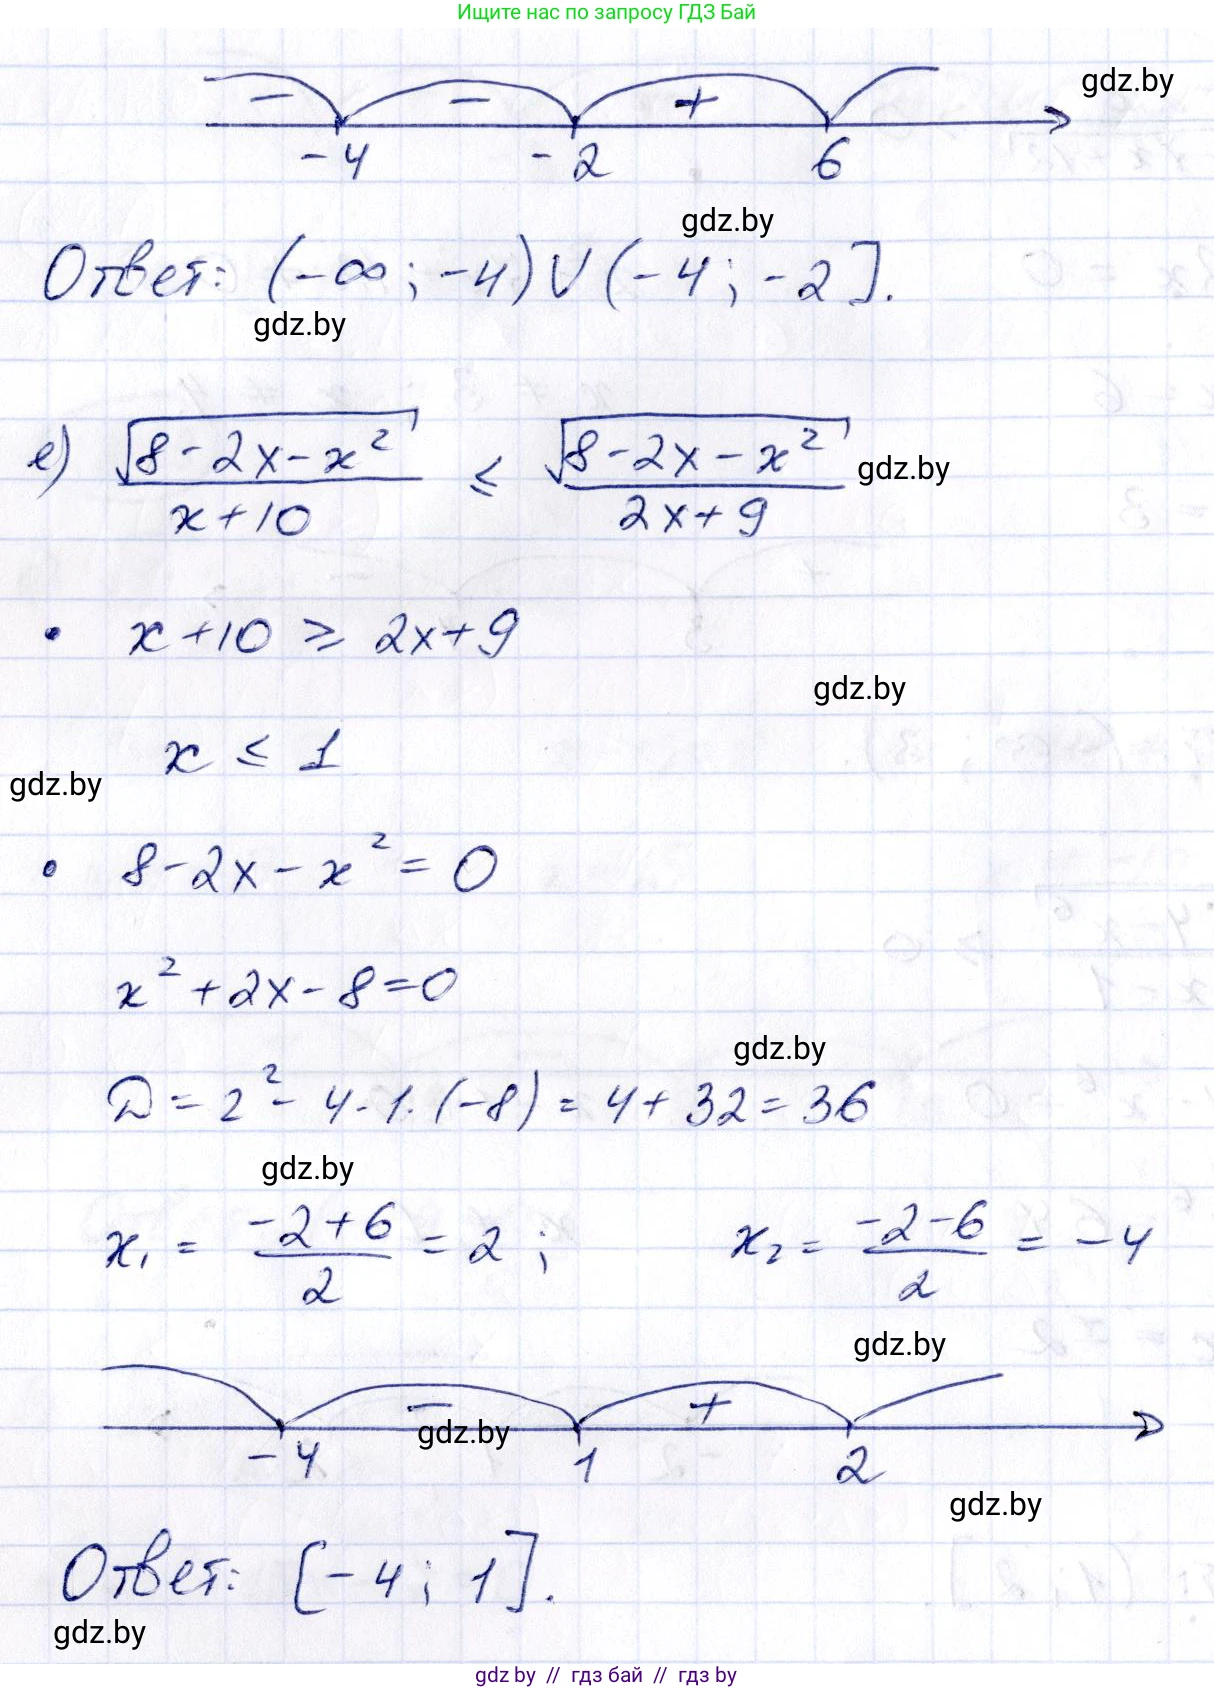 Ищите нас по запросу ГДЗ Бай
gdz.by
− − +
−4 −2 6
gdz.by
Ответ: (−∞; −4) ∪ (−4; −2].
gdz.by
е) √(8−2x−x²)/(x+10) ≤ √(8−2x−x²)/(2x+9)
gdz.by
• x+10 ≥ 2x+9
gdz.by
x ≤ 1
gdz.by
• 8−2x−x² = 0
x²+2x−8=0
gdz.by
D = 2² − 4·1·(−8) = 4+32 = 36
gdz.by
x₁ = (−2+6)/2 = 2; x₂ = (−2−6)/2 = −4
gdz.by
− +
gdz.by
−4 1 2
gdz.by
Ответ: [−4; 1].
gdz.by
gdz by // гдз бай // гдз by